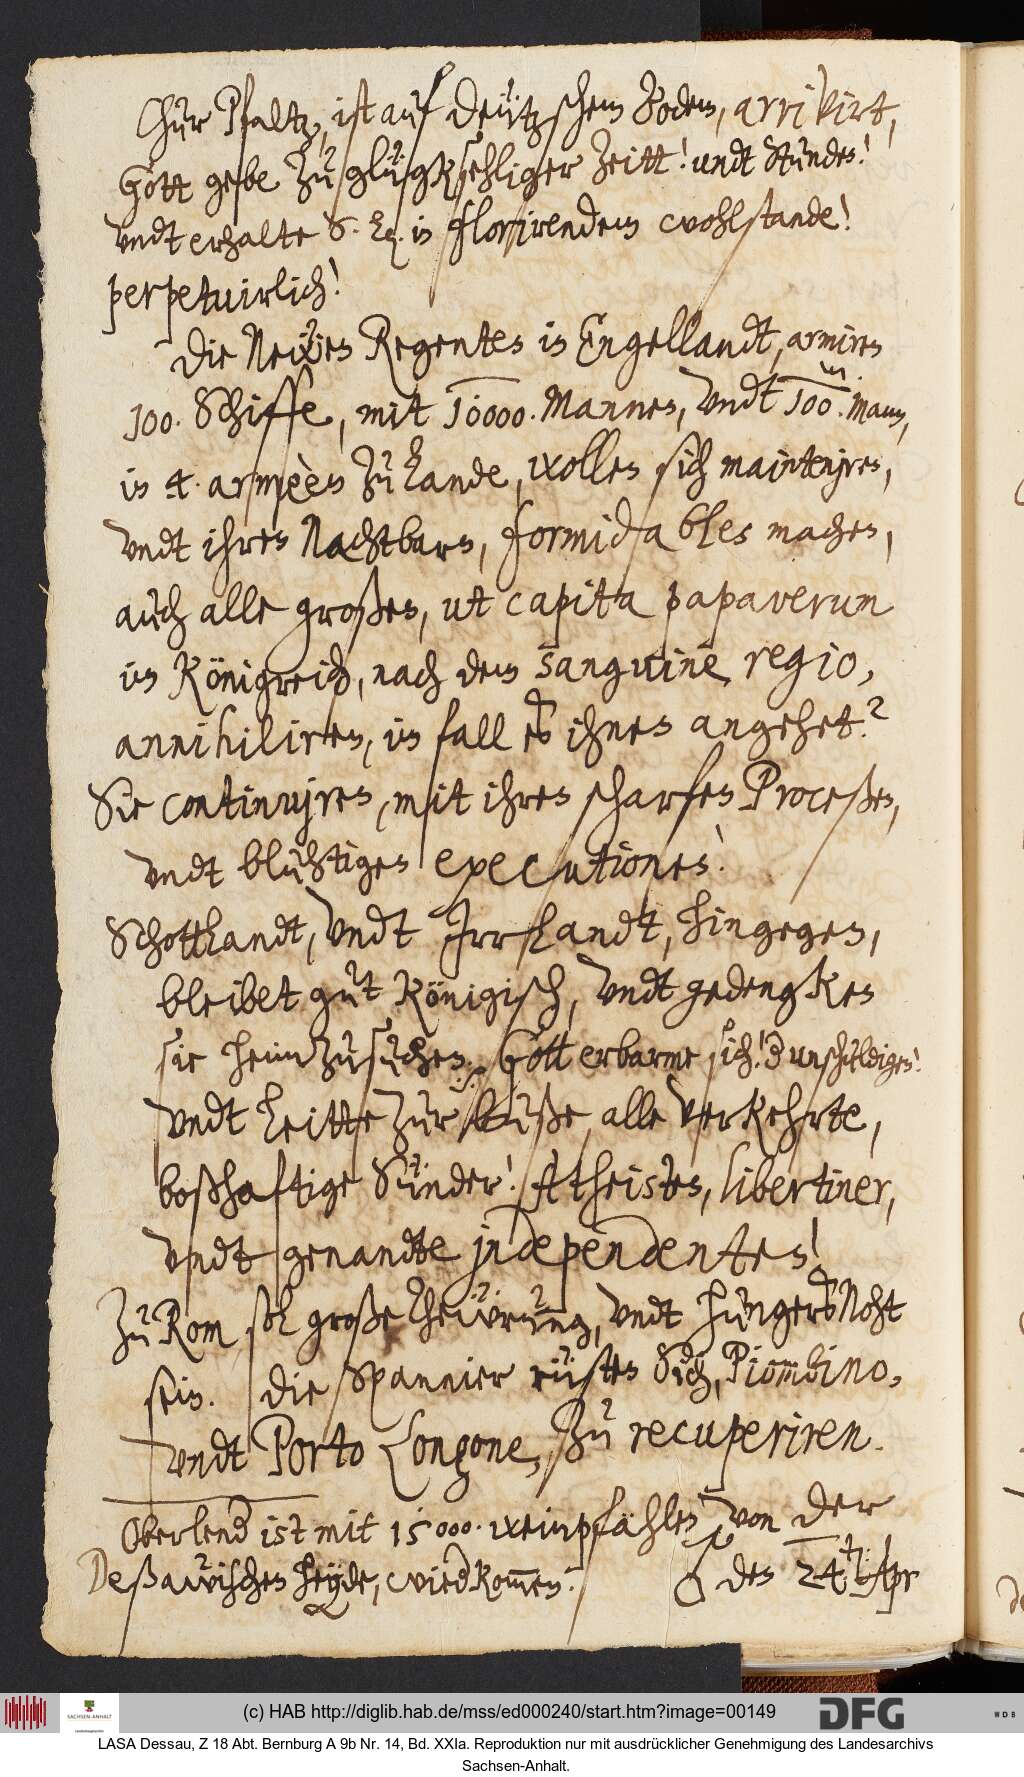 Chur Pfaltz, ist auf deützschem Bodem, arrivirt,
Gott gebe zu glügksehliger Zeitt! undt Stunde!
Undt erhalte S. L. in florirendem wohlstande!
perpetuirlich!
Die Neẅen Regenten in Engellandt, armiren
100. Schiffe, mit 10000. Mannen, Undt 100 m. Mann,
in 4. armèèn zu Lande, wollen sich maintenjren,
Undt ihren Nachtbarn, formidables machen,
auch alle großen, ut capita papaverum
im Königreich, nach dem sanguine regio,
annihiliren, im fall es ihnen angehet?
Sie continujren, mit ihren scharfen Proceßen,
Undt bluhtigen executionen!
Schottlandt, Undt Irrlandt, hingegen,
bleibet gut Königisch, Undt gedengken
sie heimzusuchen. Gott erbarme sich! d unschuldigen!
Undt leitte zur buße, alle verkehrte,
boßhaftige Sünder! Atheisten, libertiner,
Undt genandte jndependenten!
Zu Rom soll große Theẅrung, Undt hungersNoht
sein. Die Spannier rüsten Sich, Piombino,
Undt Porto Longone, zu recuperiren.
Oberlend ist mit 15000. weinpfählen von der
Deßawischen Heyde, wiedkommen.
♂ den 24. Apr
(c) HAB http://diglib.hab.de/mss/ed000240/start.htm?image=00149
SACHSEN-ANHALT
DFG
WDB
LASA Dessau, Z 18 Abt. Bernburg A 9b Nr. 14, Bd. XXIa. Reproduktion nur mit ausdrücklicher Genehmigung des Landesarchivs
Sachsen-Anhalt.